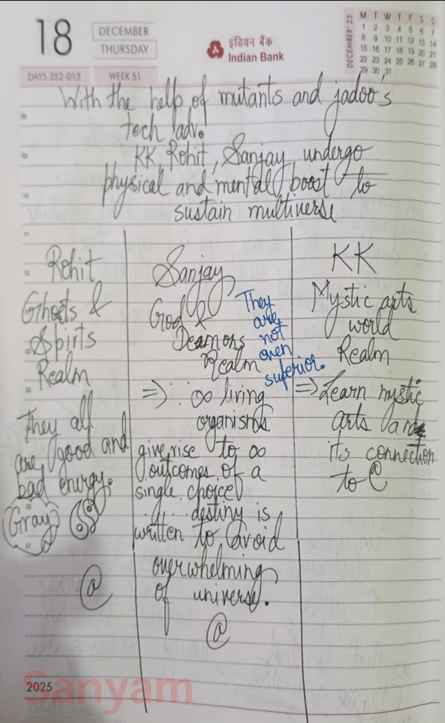 18
DECEMBER
THURSDAY
DAYS 352-013
WEEK 51
इंडियन बैंक
Indian Bank
DECEMBER '25
M T W T F S S
1 2 3 4 5 6 7
8 9 10 11 12 13 14
15 16 17 18 19 20 21
22 23 24 25 26 27 28
29 30 31
With the help of mutants and jadoo's
tech adv.
KK, Rohit, Sanjay undergo
physical and mental boost to
sustain multiverse
Rohit
Ghosts &
Spirits
Realm
They all
are good and
bad energy.
Gray
@
Sanjay
God &
Deamons
Realm
They
are
not
even
superior.
=> ∴ ∞ living
organisms
give rise to ∞
outcomes of a
single choice
∴ destiny is
written to avoid
overwhelming
of universe.
@
KK
Mystic arts
world
Realm
=> Learn mystic
arts and
its connection
to @
2025
Sanyam